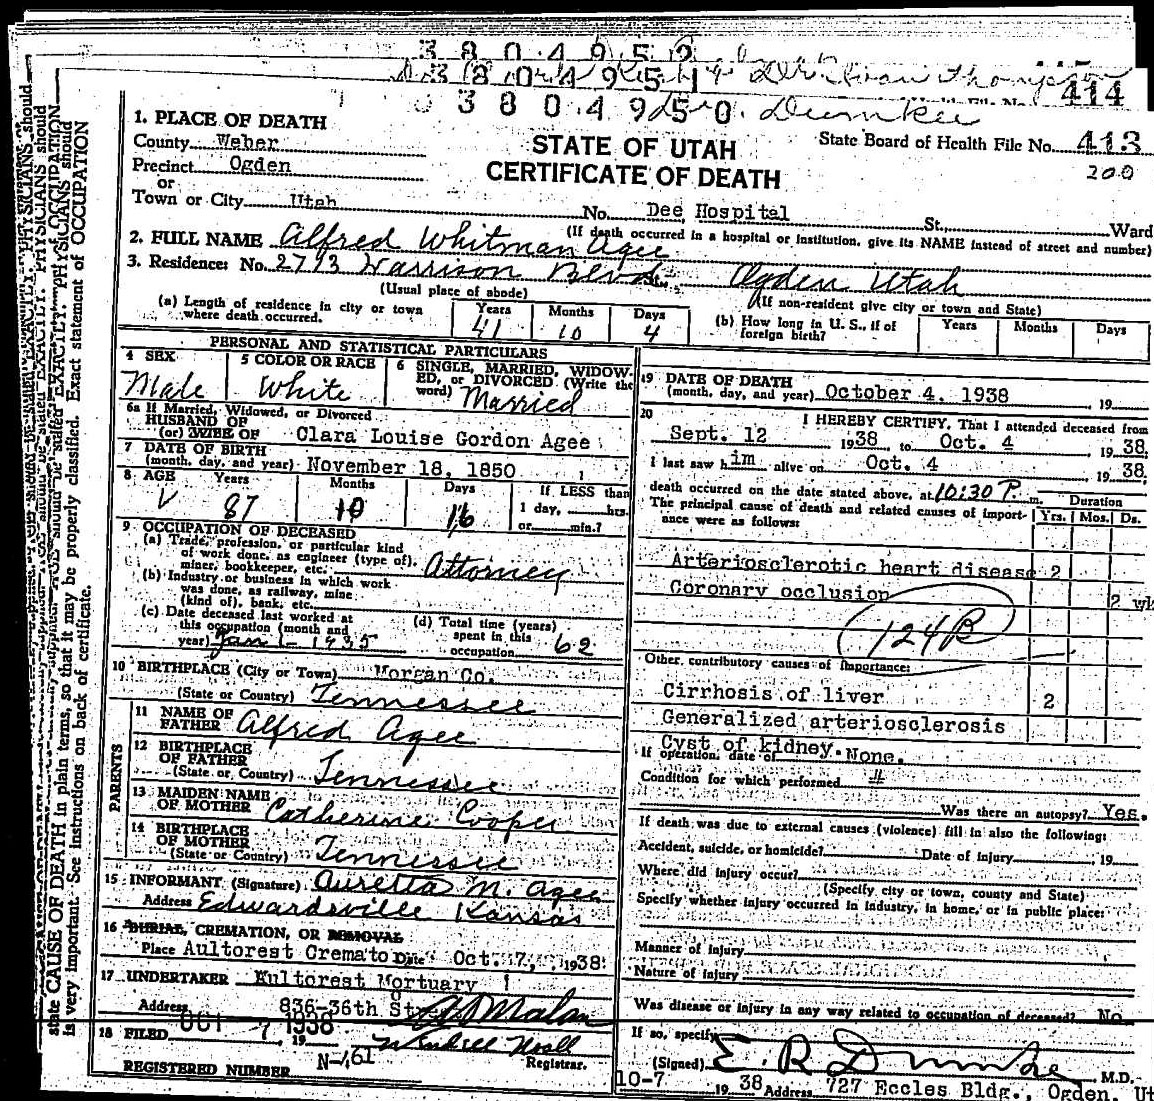 3 8 0 4 9 5 2
3 8 0 4 9 5 1
414
3 8 0 4 9 5 0. Dr. Dumke
1. PLACE OF DEATH
County Weber
STATE OF UTAH
State Board of Health File No. 413
Precinct Ogden
CERTIFICATE OF DEATH
200
or
Town or City Utah No. Dee Hospital St., Ward
(If death occurred in a hospital or institution, give its NAME instead of street and number)
2. FULL NAME Alfred Whitman Agee
3. Residence: No. 2793 Harrison Blvd St., Ogden Utah
(Usual place of abode) (If non-resident give city or town and State)
(a) Length of residence in city or town where death occurred. Years 41 Months 10 Days 4
(b) How long in U. S., if of foreign birth? Years Months Days
PERSONAL AND STATISTICAL PARTICULARS
4 SEX Male
5 COLOR OR RACE White
6 SINGLE, MARRIED, WIDOWED, or DIVORCED (Write the word) Married
6a If Married, Widowed, or Divorced
HUSBAND OF
(or) WIFE OF Clara Louise Gordon Agee
7 DATE OF BIRTH
(month, day, and year) November 18, 1850
8 AGE Years 87 Months 10 Days 16 If LESS than 1 day, hrs. or min.?
9 OCCUPATION OF DECEASED
(a) Trade, profession, or particular kind of work done, as engineer (type of), miner, bookkeeper, etc. Attorney
(b) Industry or business in which work was done, as railway, mine (kind of), bank, etc.
(c) Date deceased last worked at this occupation (month and year) Jan 1 - 1935
(d) Total time (years) spent in this occupation 62
10 BIRTHPLACE (City or Town) Morgan Co.
(State or Country) Tennessee
PARENTS
11 NAME OF FATHER Alfred Agee
12 BIRTHPLACE OF FATHER
(State or Country) Tennessee
13 MAIDEN NAME OF MOTHER Catherine Cooper
14 BIRTHPLACE OF MOTHER
(State or Country) Tennessee
15 INFORMANT (Signature) Auretta N. Agee
Address Edwardsville Kansas
16 BURIAL, CREMATION, OR REMOVAL
Place Aultorest Cremato Date Oct. 7, 1938
17 UNDERTAKER Aultorest Mortuary
Address 836-36th St
18 FILED OCT 7 1938 19
Registrar.
REGISTERED NUMBER N-161
19 DATE OF DEATH
(month, day, and year) October 4, 1938, 19
20 I HEREBY CERTIFY, That I attended deceased from
Sept. 12 1938 to Oct. 4 1938.
I last saw him alive on Oct. 4 1938,
death occurred on the date stated above, at 10:30 P. m.
Duration
The principal cause of death and related causes of importance were as follows:
Yrs. Mos. Ds.
Arteriosclerotic heart disease 2
Coronary occlusion 2 wk
124B
Other contributory causes of importance:
Cirrhosis of liver 2
Generalized arteriosclerosis
Cyst of kidney.
If operation, date of None.
Condition for which performed
Was there an autopsy? Yes.
If death was due to external causes (violence) fill in also the following:
Accident, suicide, or homicide? Date of injury , 19
Where did injury occur?
(Specify city or town, county and State)
Specify whether injury occurred in industry, in home, or in public place:
Manner of injury
Nature of injury
Was disease or injury in any way related to occupation of deceased? No
If so, specify
(Signed) E. R. Dumke M.D.
10-7 1938 Address 727 Eccles Bldg., Ogden, Ut
state CAUSE OF DEATH in plain terms, so that it may be properly classified. Exact statement of OCCUPATION
is very important. See instructions on back of certificate.